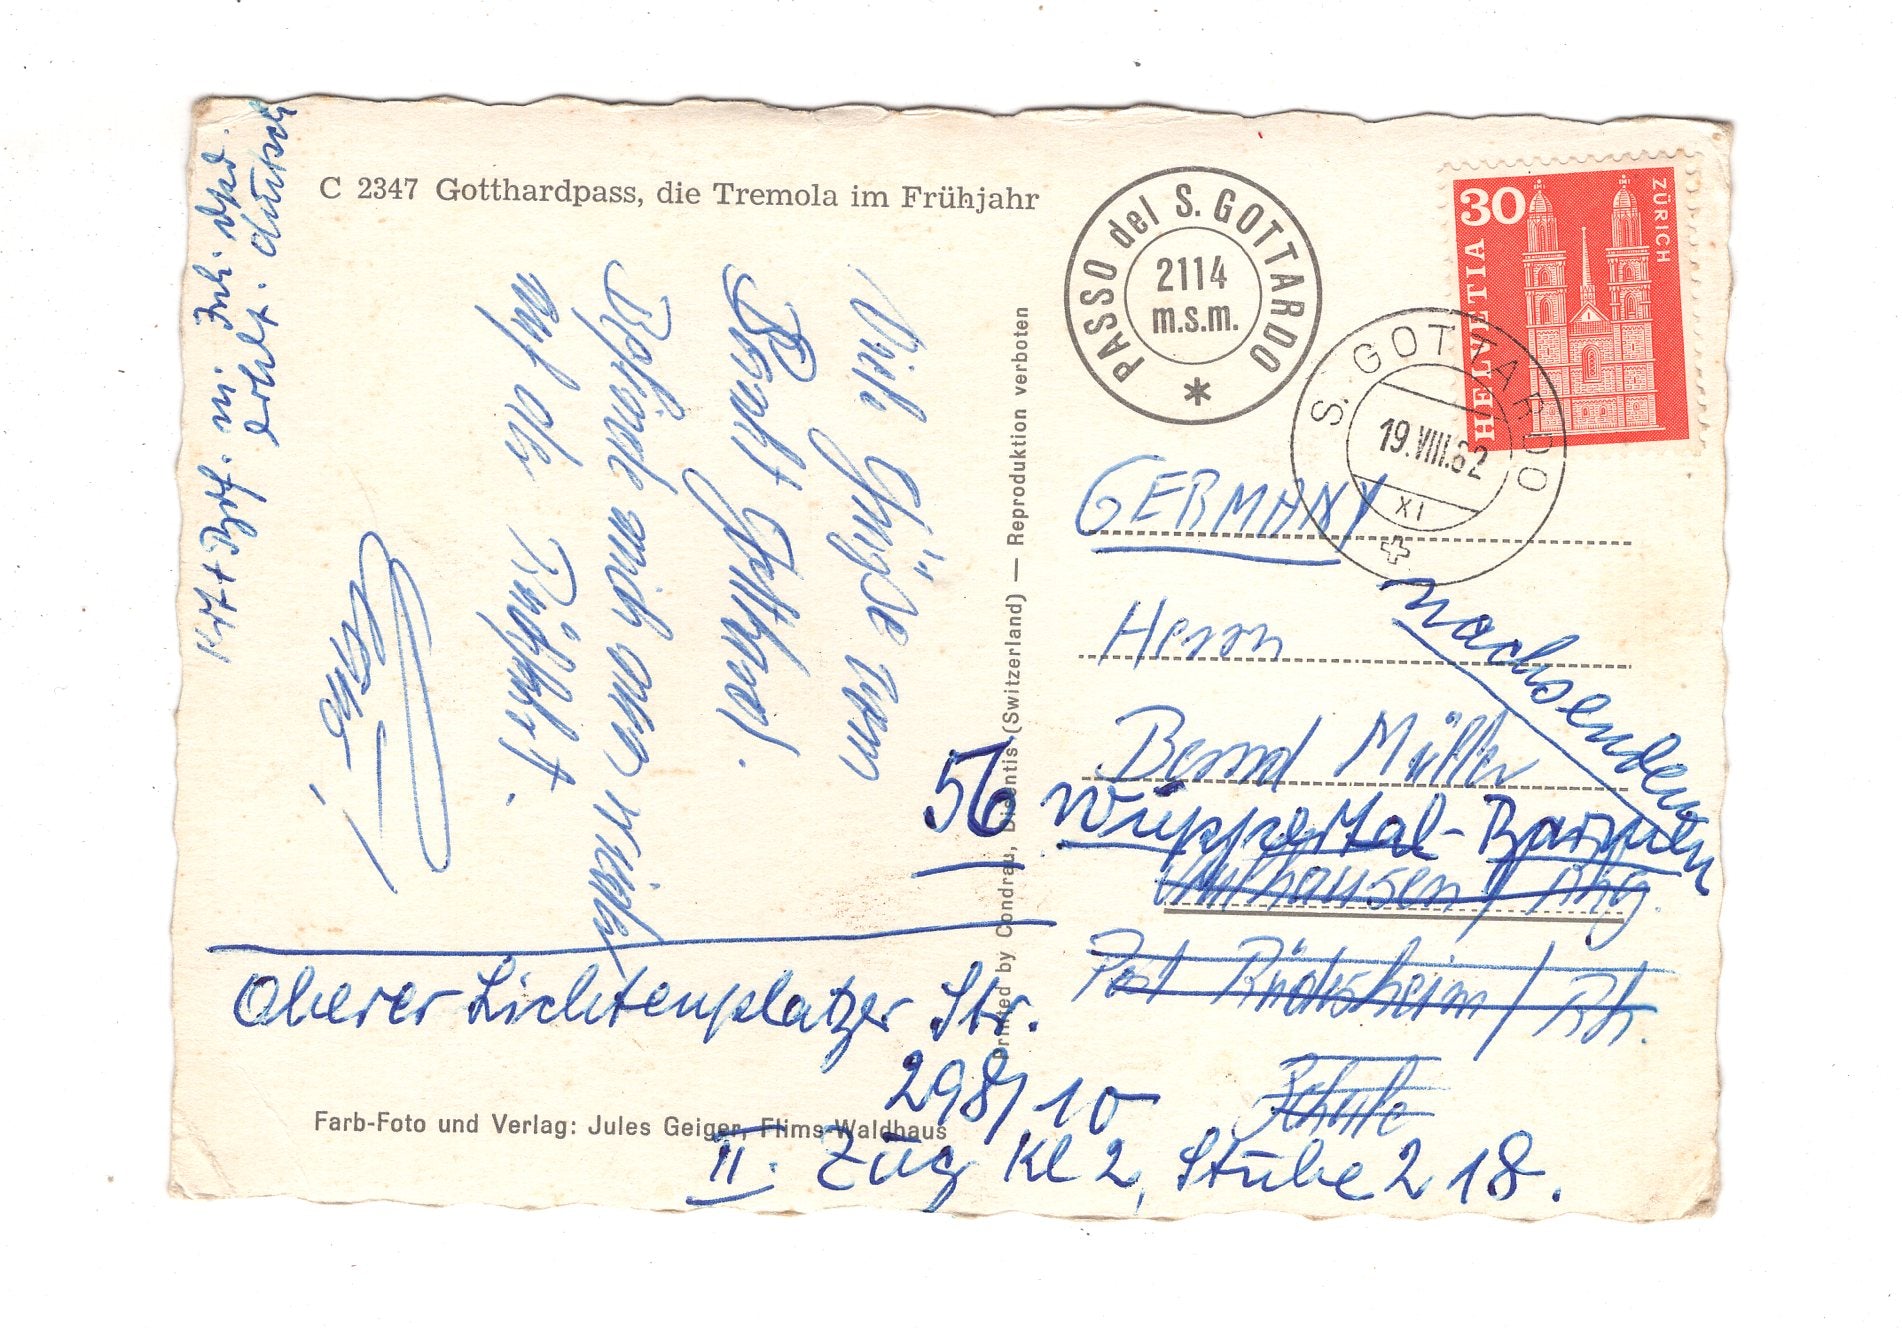 C 2347 Gotthardpass, die Tremola im Frühjahr
PASSO del S. GOTTARDO
2114
m.s.m.
*
30
HELVETIA
ZÜRICH
S. GOTTARDO
19.VIII.62
XI
Viele Grüße vom
St. Gotthard.
Befinde mich schon wieder
auf der Rückfahrt.
erhlt.
Printed by Condrau, Disentis (Switzerland) — Reproduktion verboten
GERMANY
Herrn
Bernd Müller
nachsenden
56 Wuppertal-Barmen
Aulhausen / Rhg.
Post Rüdesheim / Rh.
Schule
Oberer Lichtenplatzer Str.
298/10
II. Zug Kl 2, Stube 218.
Farb-Foto und Verlag: Jules Geiger, Flims-Waldhaus